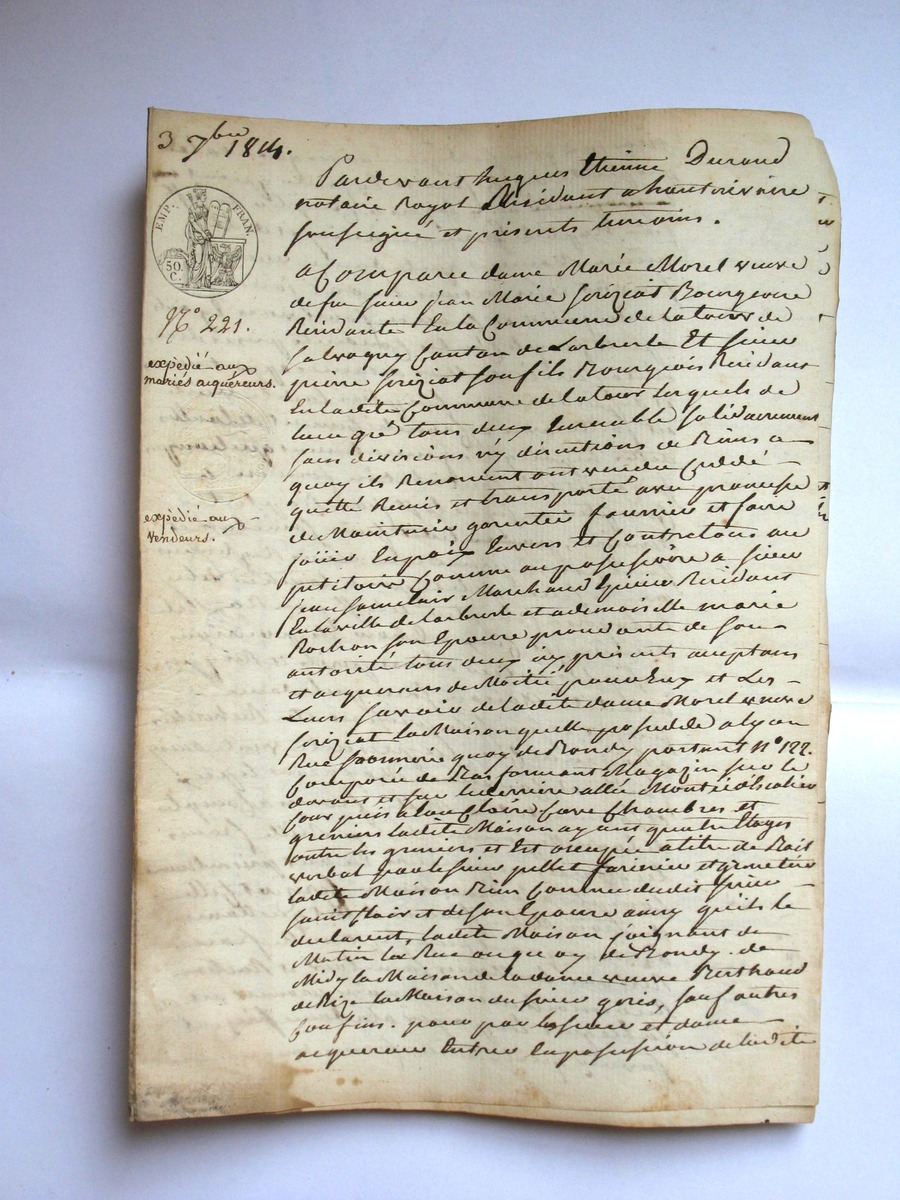 3 7bre 1814.
EMP. FRAN.
50 C.
No 221.
expédié aux
mariés acquéreurs.
expédié aux
vendeurs.
Pardevant hugues Etienne Durand
notaire Royal Résidant a hauterivoire
soussigné et présents temoins.
a Comparee dame Marie Morel veuve
de feu sieur jean Marie Soriziat Bourgeoise
Residante En la Commune de la tour de
Salvagny Canton de Larbresle Et sieur
pierre Soriziat son fils Bourgeois Residant
En ladite Commune de la tour Lesquels de
leur gré tous deux Ensemble solidairement
sans divisions n'y discutions de Biens a
quoy ils Renoncent ont vendu Ceddé
quitté Remis et transporté avec promesse
de Maintenir garentir fournir et faire
jouir En paix Envers et Contre tous au
petitoire Comme au possessoire a sieur
jean Saint clair Marchand Epicier Residant
En la ville de Larbresle et a demoiselle marie
Rochon son Epouse procedante de son
autorité tous deux icy présents acceptans
et acquereurs de Moitié pour Eux et Les
Leurs Savoir de ladite dame Morel veuve
Soriziat la Maison quelle possedde a lyon
Rue quay de Bondy portant No 122.
Composée de Bas formant Magazin sur le
devant et sur le derriere allée Montée d'Escalier
Cour puis a Eau Claire Cave Chambres et
greniers ladite Maison ayant quatre Etages
outre les greniers et Est occupée a titre de Bail
verbal par le sieur jullet farinier et grenetier
ladite Maison Bien Connue dudit sieur
Saint Clair et de son Epouse ainsy qu'ils le
declarent, ladite Maison joignant de
Matin la Rue ou quay de Bondy. de
Midy la Maison de la dame veuve Berthaud
de Bize la Maison du sieur goris, sauf autres
Confins. pour par les sieur et dame
acquereurs Entrer En possession de ladite